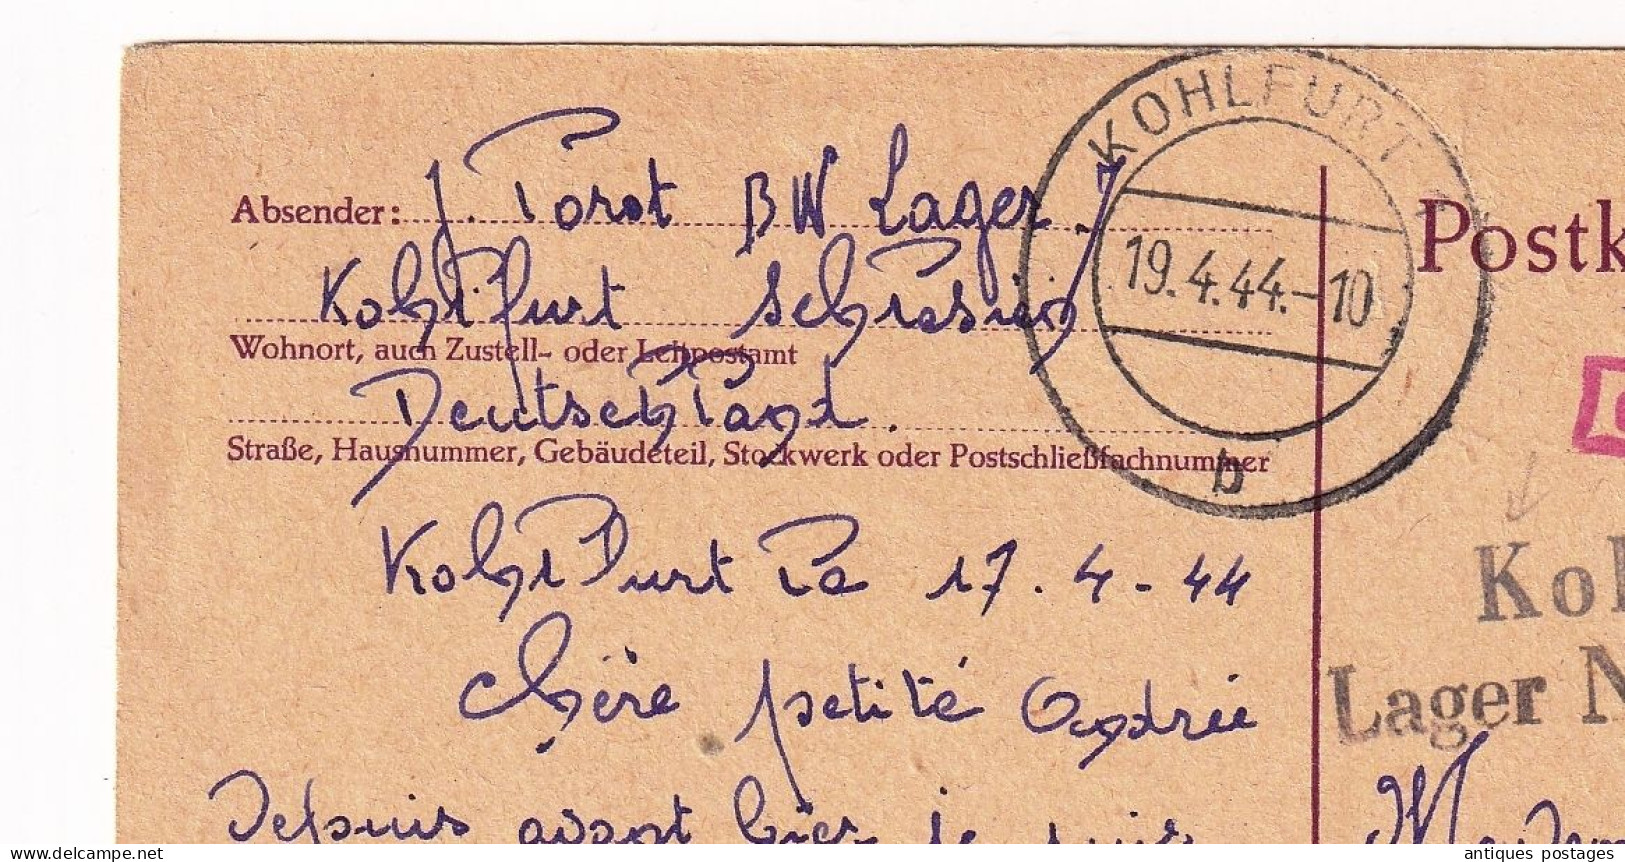 KOHLFURT
19.4.44.-10
b
Postk
Absender: J. Porst BW Lager
Kohlfurt Schlesien
Wohnort, auch Zustell- oder Leitpostamt
Deutschland.
Straße, Hausnummer, Gebäudeteil, Stockwerk oder Postschließfachnummer
Kohlfurt Le 17.4-44
Kol
Lager N
Chère petite Andrée
Depuis avant hier je suis
antiques postages